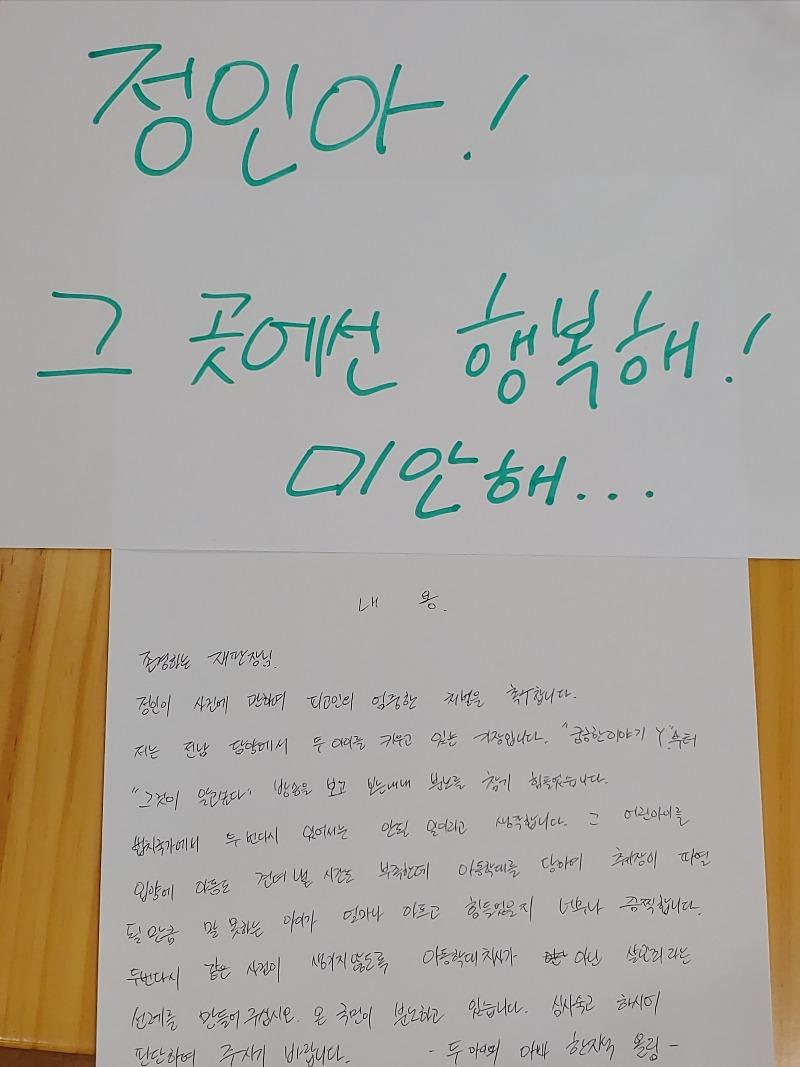 정인아!
그 곳에선 행복해!
미안해...
내 용.
존경하는 재판장님.
정인이 사건에 관하여 피고인의 엄중한 처벌을 촉구합니다.
저는 전남 담양에서 두 아이를 키우고 있는 가장입니다. "궁금한이야기 Y"부터
"그것이 알고싶다" 방송을 보고 보는내내 분노를 참기 힘들었습니다.
법치국가에서 두번다시 있어서는 안될 일이라고 생각합니다. 그 어린아이를
입양에 다듬도 견뎌낼 시간도 부족한데 아동학대를 당하여 췌장이 파열
될만큼 말 못하는 아이가 얼마나 아프고 힘들었을지 너무나 끔찍합니다.
두번다시 같은 사건이 생기지않도록 아동학대치사가 아닌 살인죄라는
선례를 만들어주십시오. 온 국민이 분노하고 있습니다. 심사숙고 하시어
판단하여 주시기 바랍니다. - 두 아이의 아빠 한지석 올림 -